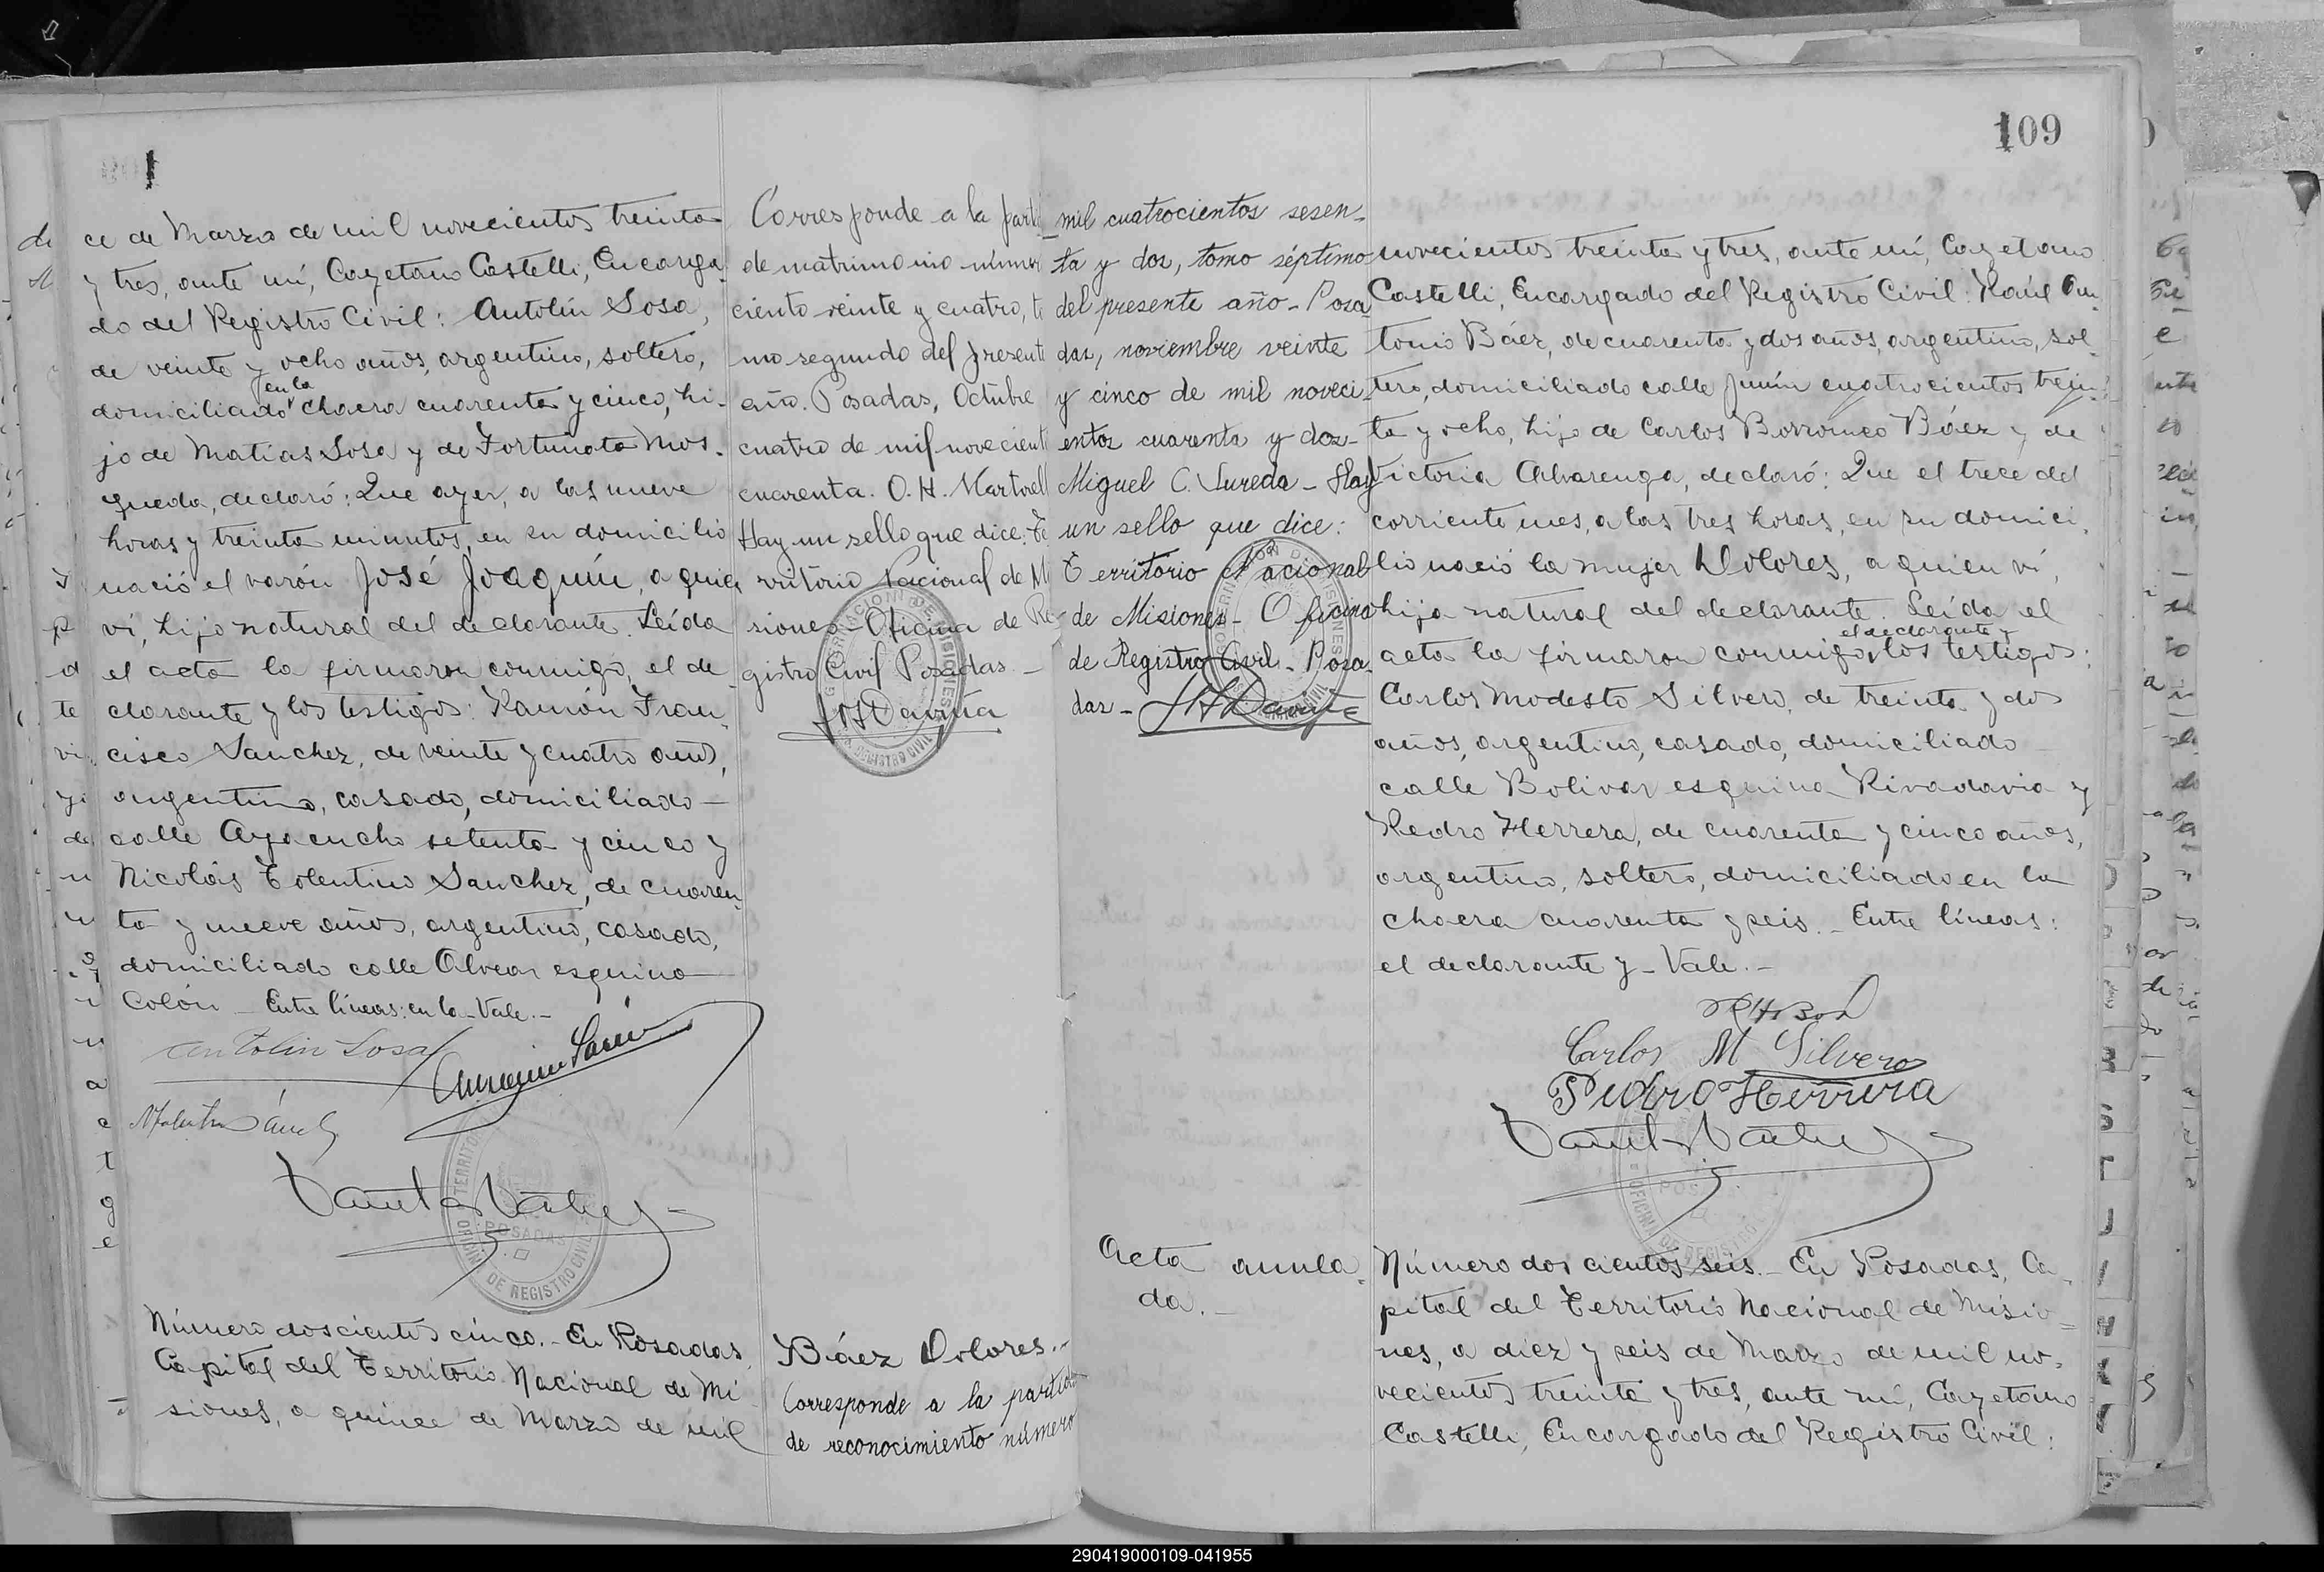 ce de Marzo de mil novecientos treinta
y tres, ante mí, Cayetano Castelli, Encarga
do del Registro Civil: Antolín Sosa,
de veinte y ocho años, argentino, soltero,
en la
domiciliado chacra cuarenta y cinco, hi-
jo de Matías Sosa y de Fortunata Mos-
queda, declaró: Que ayer, a las nueve
horas y treinta minutos, en su domicilio
nació el varón José Joaquín, a quien
ví, hijo natural del declarante. Leída
el acta la firmaron conmigo, el de
clarante y los testigos: Ramón Fran-
cisco Sanchez, de veinte y cuatro años,
argentino, casado, domiciliado
calle Ayacucho setenta y cinco y
Nicolás Tolentino Sanchez, de cuaren
ta y nueve años, argentino, casado,
domiciliado calle Alvear esquina
Colón - Entre líneas: en la - Vale.-
Antolin Sosa
POSADAS
DE REGISTRO CIVIL
Número doscientos cinco.- En Posadas,
Capital del Territorio Nacional de Mi
siones, a quince de Marzo de mil
Corresponde a la parti
de matrimonio númer
ciento veinte y cuatro, to
mo segundo del present
año. Posadas, Octubre
cuatro de mil novecient
cuarenta. O. H. Martorell
Hay un sello que dice: Te
rritorio Nacional de M
siones - Oficina de Re
gistro Civil Posadas -
Báez Dolores.-
Corresponde a la partida
de reconocimiento número
109
mil cuatrocientos sesen-
ta y dos, tomo séptimo
del presente año - Posa
das, noviembre veinte
y cinco de mil noveci-
entos cuarenta y dos-
Miguel C. Lureda - Hay
un sello que dice:
Territorio Nacional
de Misiones - Oficina
de Registro Civil - Posa
das -
novecientos treinta y tres, ante mí, Cayetano
Castelli, Encargado del Registro Civil: Raúl An-
tonio Báez, de cuarenta y dos años, argentino, sol-
tero, domiciliado calle Junín cuatrocientos trein-
ta y ocho, hijo de Carlos Borromeo Báez y de
Victoria Alvarenga, declaró: Que el trece del
corriente mes, a las tres horas, en su domici-
lio nació la mujer Dolores, a quien ví,
hija natural del declarante. Leída el
el declarante y
acta la firmaron conmigo, los testigos:
Carlos Modesto Silvero, de treinta y dos
años, argentino, casado, domiciliado
calle Bolivar esquina Rivadavia y
Pedro Herrera, de cuarenta y cinco años,
argentino, soltero, domiciliado en la
chacra cuarenta y seis.- Entre líneas:
el declarante y - Vale.-
Carlos M Silvero
Pedro Herrera
Acta anula-
da.-
Número dos cientos seis.- En Posadas, Ca-
pital del Territorio Nacional de Misio-
nes, a diez y seis de Marzo de mil no-
vecientos treinta y tres, ante mí, Cayetano
Castelli, Encargado del Registro Civil:
290419000109-041955